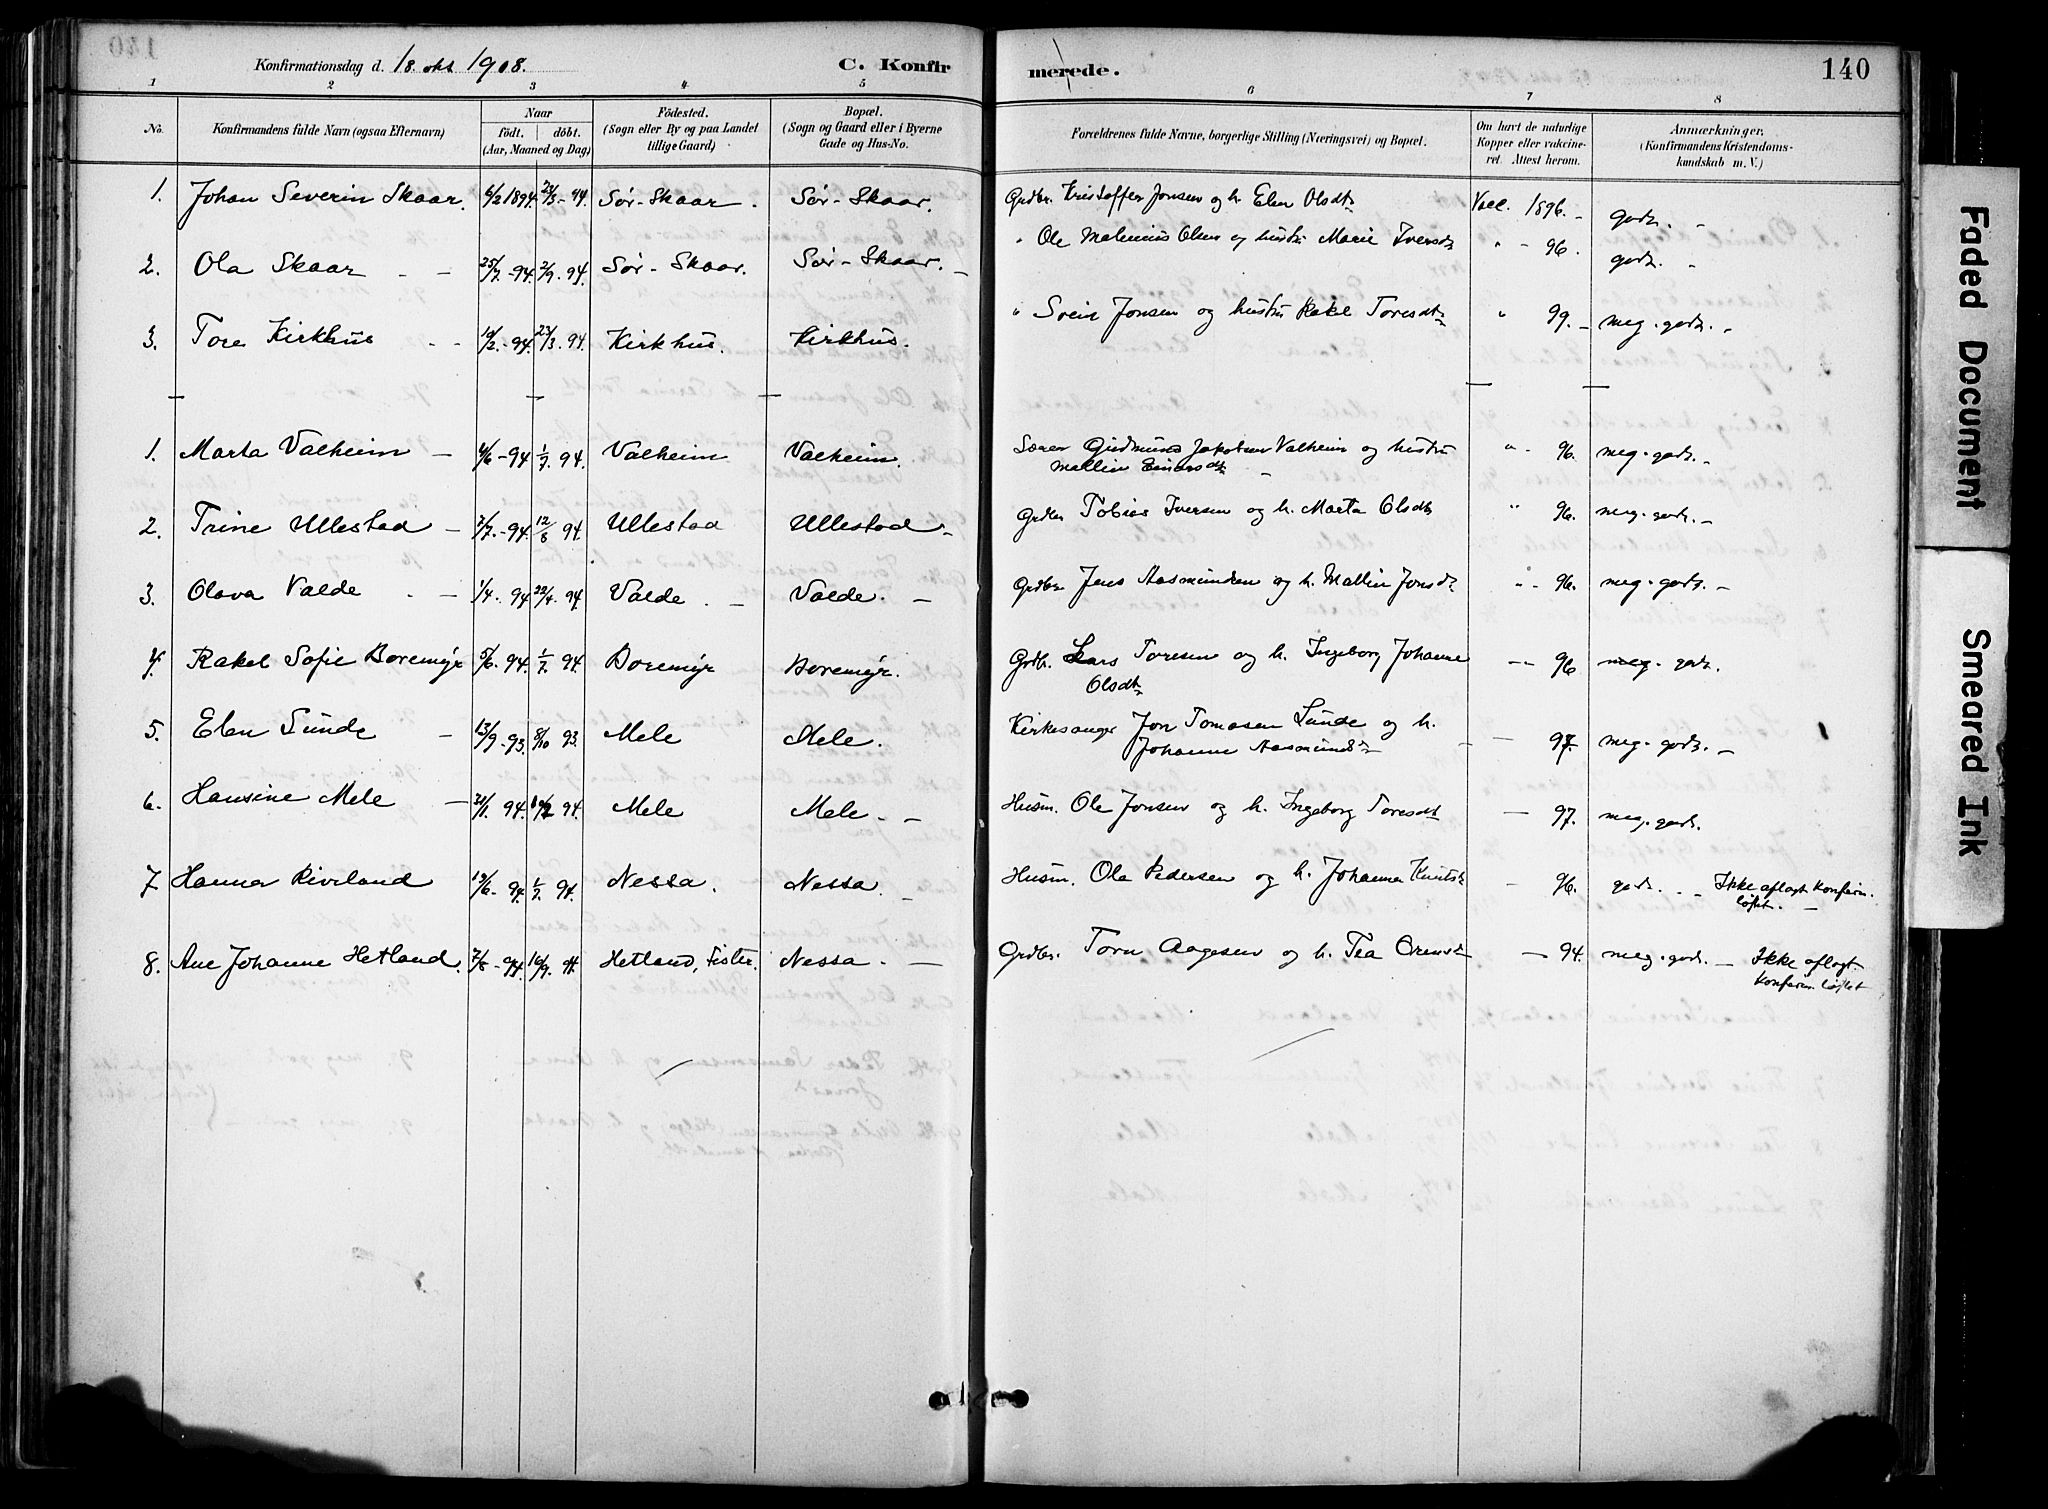 Konfirmationsdag d. 18. okt 1908. C. Konfirmerede. 140
1 2 3 4 5 6 7 8
No. Konfirmandens fulde Navn (ogsaa Efternavn) Naar født. døbt. (Aar, Maaned og Dag) Fødested. (Sogn eller By og paa Landet tillige Gaard) Bopæl. (Sogn og Gaard eller i Byerne Gade og Hus-No. Forældrenes fulde Navne, borgerlige Stilling (Næringsvei) og Bopæl. Om havt de naturlige Kopper eller vakcineret. Attest herom. Anmærkninger. (Konfirmandens Kristendomskundskab m. V.)
1. Johan Severin Skaar. 6/2 1894. 23/3 - 94. Sør-Skaar. Sør-Skaar. Grdbr. Kristoffer Jonsen og h. Elen Olsdtr Vacc. 1896. godt.
2. Ola Skaar 25/7 - 94. 2/9. 94. Sør-Skaar. Sør-Skaar. " Ole Malenius Olsen og hustru Marie Iversdtr " 96. godt.
3. Tore Kirkhus 94. 23/3. 94. Kirkhus. Kirkhus. " Svein Jonsen og hustru Rakel Toresdtr " 99. meg. godt.
1. Marta Valheim 94 1/7. 94. Valheim Valheim. Lærer Gudmund Jakobsen Valheim og hustru " 96. meg. godt.
Mallin Einarsdtr
2. Trine Ullestad 2/7. - 94. 12/8 94. Ullestad Ullestad. Grdbr Tobias Iversen og h. Marta Olsdtr " 96. meg. godt.
3. Olava Valde 1/4. 94 22/4. 94 Valde. Valde. Grdbr Jens Aasmundsen og h. Mallin Jonsdtr " 96. meg. godt.
4. Rakel Sofie Boremyr 5/6. 94. 1/7. 94. Boremyr Boremyr. Grdbr. Lars Toresen og h. Ingeborg Johanne 96 meg. godt.
Olsdtr
5. Elen Sunde 13/9 - 93. 8/10 93. Mele Mele. Kirkesanger Jon Tomasen Sunde og h. 97. meg. godt.
Johanne Aasmundsdtr
6. Hansine Mele 21/1. 94. 94. Mele Mele. Husm. Ole Jonsen og h. Ingeborg Toresdtr 97. meg. godt.
7 Hanna Riveland 94. 1/7. 94. Nessa. Nessa. Husm. Ole Pedersen og h. Johanna Knutsdtr 96. godt. Ikke aflagt konfirm.
løftet.
8. Ane Johanne Hetland. 94. 16/9. 94. Hetland, Fister. Nessa. Grdbr. Torn Aagesen og h. Tea 94. meg. godt. Ikke aflagt
konfirm. løftet
Faded Document
Smeared Ink